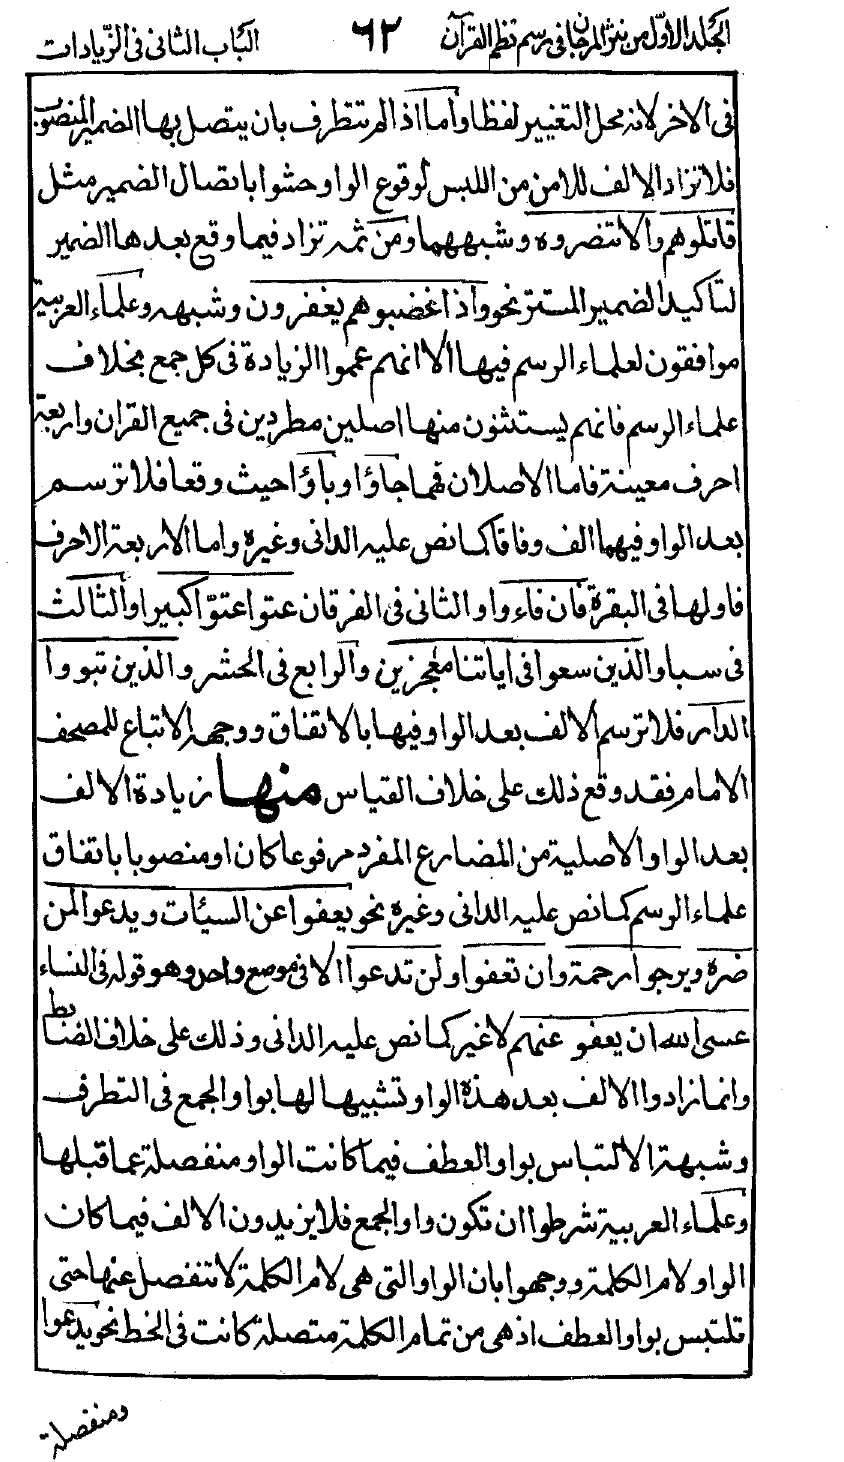 الجلد الاوّل من نثر المرجان فى رسم نظم القرآن ٦٢ الباب الثانى فى الزّيادات
فى الاخر لانه محل التغيير لفظا واما اذا لم تتطرف بان يتصل بها الضمير المنصوب
فلا تزاد الالف للامن من اللبس لوقوع الواو حشوا باتصال الضمير مثل
قاتلوهم والا تنصروه وشبههما ومن ثمه تزاد فيما وقع بعدها الضمير
لتاكيد الضمير المستتر نحو واذا غضبوا هم يغفرون وشبهه وعلماء العربية
موافقون لعلماء الرسم فيها الا انهم عمموا الزيادة فى كل جمع بخلاف
علماء الرسم فانهم يستثنون منها اصلين مطردين فى جميع القران واربعة
احرف معينة فاما الاصلان فهما جاؤ او باؤ احيث وقعا فلا ترسم
بعد الواو فيهما الف وفاقا كما نص عليه الدانى وغيره واما الاربعة الاحرف
فاولها فى البقرة فان فاءو او الثانى فى الفرقان عتوا عتوّا كبيرا والثالث
فى سبا والذين سعوا فى اياتنا معجزين والرابع فى الحشر والذين تبووا
الدار فلا ترسم الالف بعد الواو فيها بالاتفاق ووجهه الاتباع للمصحف
الامام فقد وقع ذلك على خلاف القياس منها زيادة الالف
بعد الواو الاصلية من المضارع المفرد مرفوعا كان او منصوبا باتفاق
علماء الرسم كما نص عليه الدانى وغيره نحو يعفوا عن السيئات ويدعوا لمن
ضره ويرجوا رحمة وان تعفوا ولن تدعوا الا فى موضع واحد وهو قوله فى النساء
عسى الله ان يعفو عنهم لا غير كما نص عليه الدانى وذلك على خلاف الضابط
وانما زادوا الالف بعد هذه الواو تشبيها لها بواو الجمع فى التطرف
وشبهة الالتباس بواو العطف فيما كانت الواو منفصلة عما قبلها
وعلماء العربية شرطوا ان تكون واو الجمع فلا يزيدون الالف فيما كان
الواو لام الكلمة ووجهوا بان الواو التى هى لام الكلمة لا تنفصل عنها حتى
تلتبس بواو العطف اذ هى من تمام الكلمة متصلة كانت فى الخط نحو يدعوا
ومنفصلة